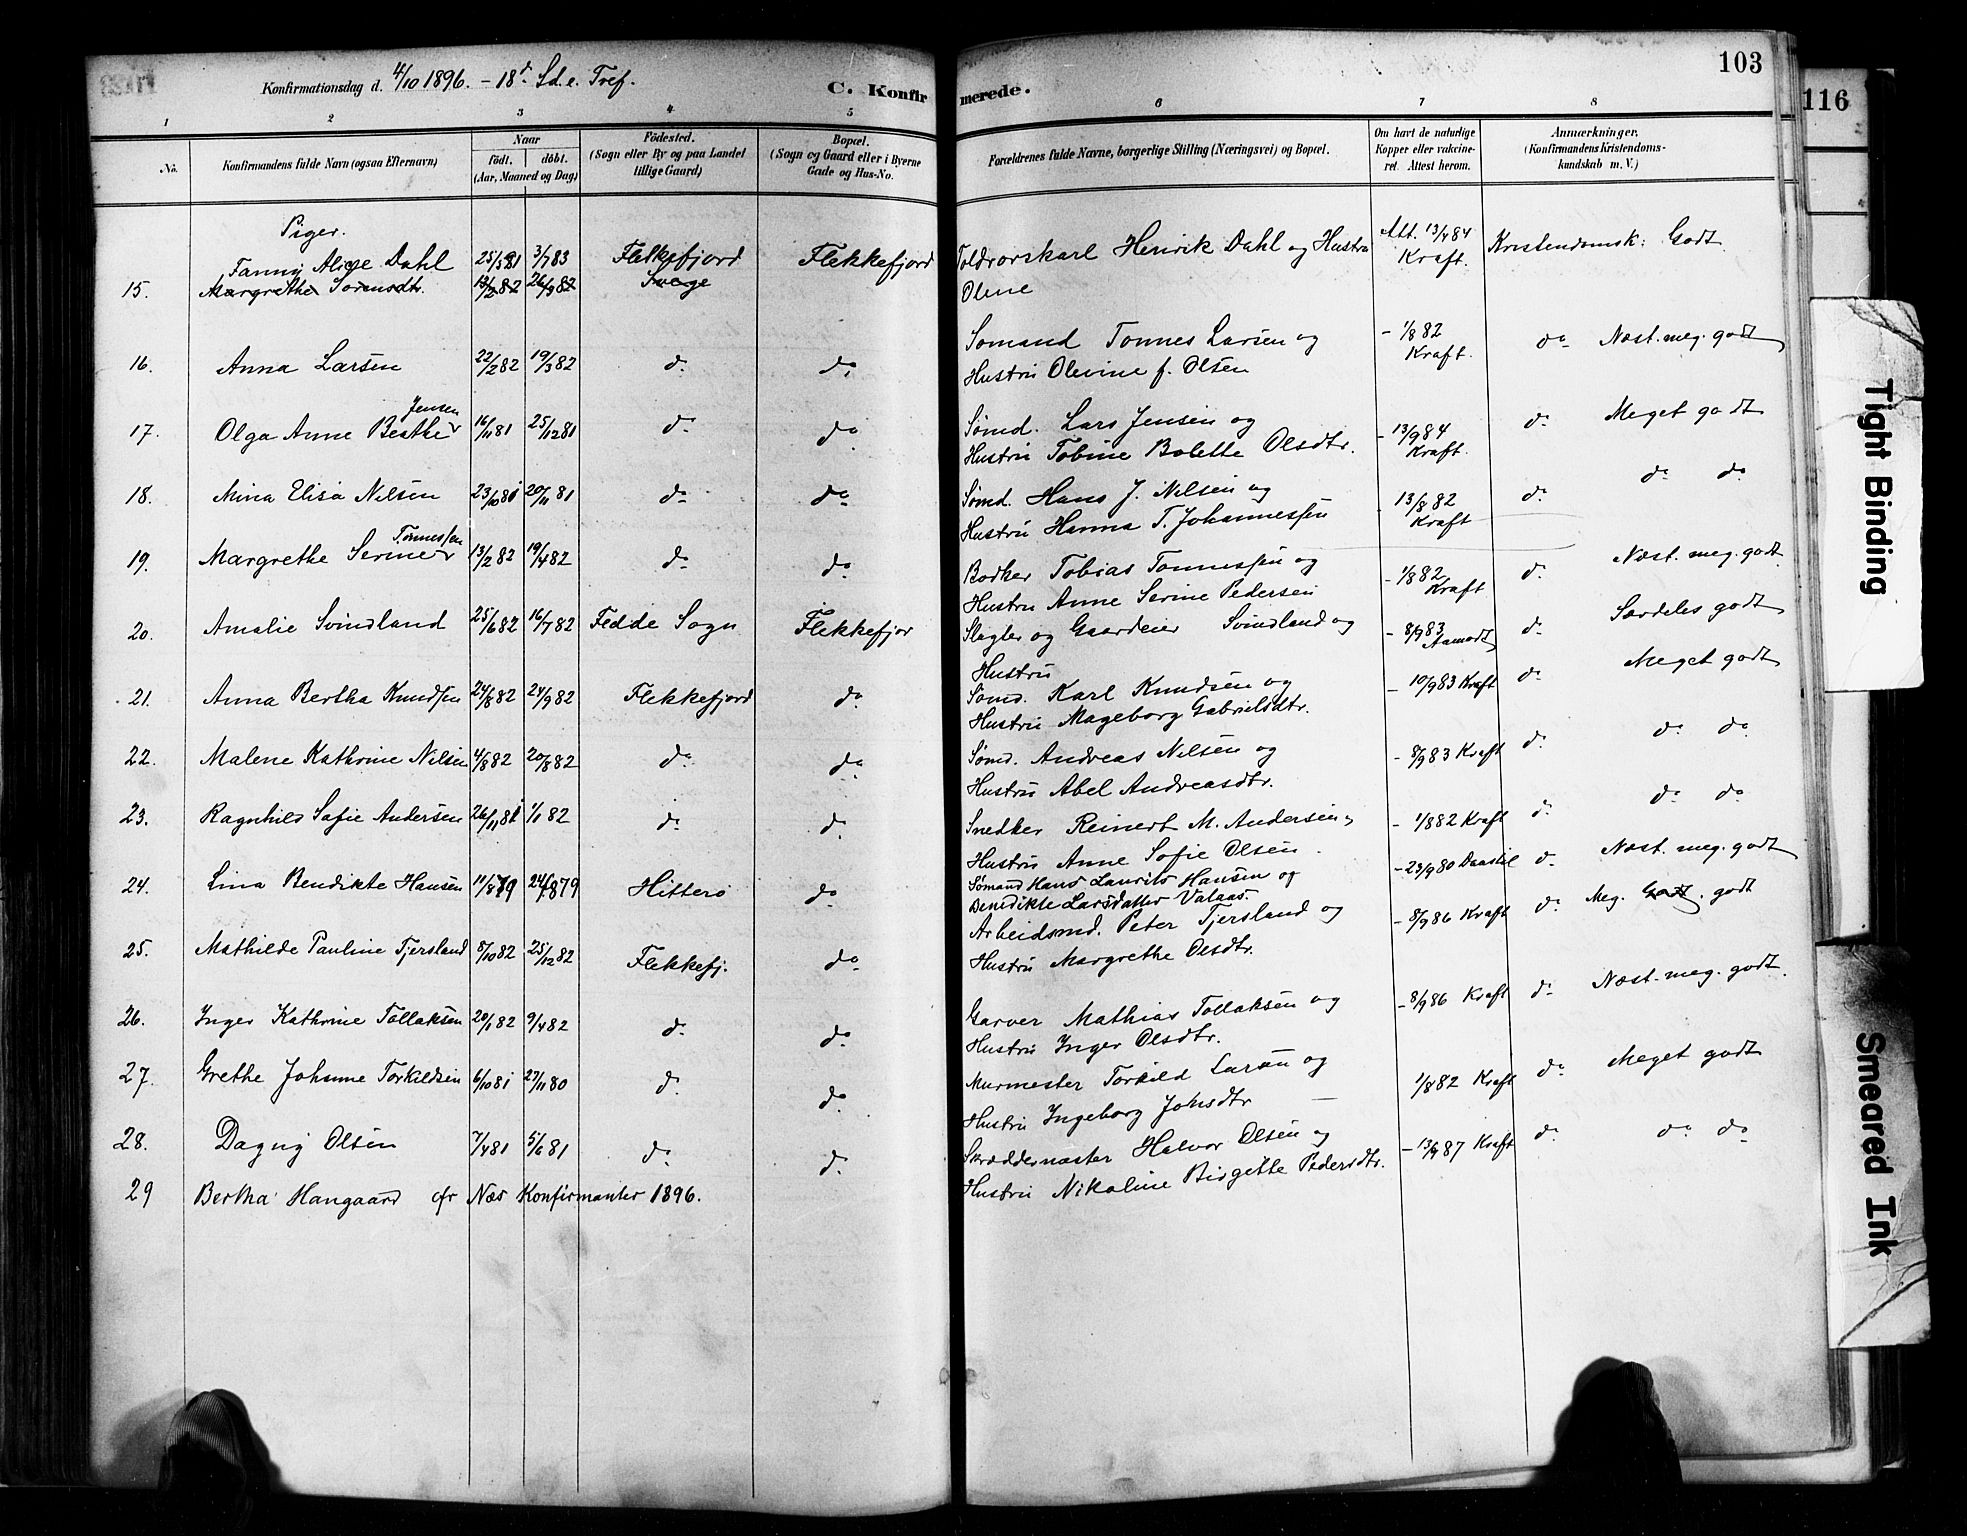 Konfirmationsdag d. 4/10 1896. - 18d. Sd. e. Tref.
C. Konfirmerede.
103
116
1 2 3 4 5 6 7 8
No.
Konfirmandens fulde Navn (ogsaa Efternavn)
Naar
födt. döbt.
(Aar, Maaned og Dag)
Födested.
(Sogn eller By og paa Landet tillige Gaard)
Bopæl.
(Sogn og Gaard eller i Byerne Gade og Hus-No.
Forældrenes fulde Navne, borgerlige Stilling (Næringsvei) og Bopæl.
Om havt de naturlige Kopper eller vakcineret. Attest herom.
Anmærkninger.
(Konfirmandens Kristendomskundskab m. V.)
Piger.
Fanny Alice Dahl 3/7 83 Flekkefjord Flekkefjord Toldrorskarl Henrik Dahl og Hustru Att. 13/9 84 Kraft. Kristendomsk: Godt
15. Margrethe Sorensdt. 13/2 82 Olene
16. Anna Larsen 22/2 82 19/3 82 do do Somand Tonnes Larsen og - 1/8 82 Kraft. do Næst. meg. godt
Hustru Olevine f. Olsen
17. Olga Anne Beathe Jensen 16/11 81 25/12 81 do do Sømd. Lars Jensen og - 13/9 84 Kraft. do Meget godt
Hustru Tobine Bolette Olsdtr.
18. Mina Elisa Nilsen 23/10 81 20/11 81 do do Sømd. Hans J. Nilsen og - 13/8 82 Kraft do do do
Hustru Hanna T. Johannessen
19. Margrethe Serine Tonnessen 13/2 82 19/4 82 do do Bodker Tobias Tonnessen og - 1/8 82 Kraft do Næst. meg. godt
Hustru Anne Serine Pedersen
20. Amalie Svindland 25/6 82 16/7 82 Fedde Sogn Flekkefjor Slagter og Gaardeier Svindland og - 8/9 83 Aamodt do Særdeles godt
Hustru
21. Anna Bertha Knudsen 24/8 82 24/9 82 Flekkefjord do Sømd. Karl Knudsen og - 10/9 83 Kraft do Meget godt
Hustru Mageborg Gabrielsdtr.
22. Malene Kathrine Nilsen 4/8 82 20/8 82 do do Sømd. Andreas Nilsen og - 8/9 83 Kraft do do do
Hustru Abel Andreasdtr.
23. Ragnhild Sofie Andersen 26/11 81 1/1 82 do do Snedker Reinert M. Andersen - 1/8 82 Kraft do do do
Hustru Anne Sofie Olsen
24. Lina Bendikte Hansen 11/8 79 24/8 79 Hitterö do Sømand Hans Laurits Hansen og - 23/9 80 Daastöl do Næst. meg. godt
Benedikte Larsdatter Vataas.
25. Mathilde Pauline Tjersland 8/10 82 25/12 82 Flekkefj. do Arbeidsmd. Peter Tjersland og - 8/9 86 Kraft do Meg. godt
Hustru Margrethe Olsdtr.
26. Inger Kathrine Tollaksen 20/1 82 9/4 82 do do Garver Mathias Tollaksen og - 8/9 86 Kraft do Næst. meg. godt.
Hustru Inger Olsdtr.
27. Grethe Johanne Torkildsen 6/10 81 27/11 80 do do Murmester Torkild Larsen og 1/8 82 Kraft do Meget godt
Hustru Ingeborg Johsdtr
28. Dagny Olsen 7/4 81 5/6 81 do do Skræddermester Halvor Olsen og - 13/9 87 Kraft do do do
Hustru Nikoline Birgitte Pedersdtr.
29 Bertha Haugaard cfr Næs Konfirmanter 1896.
Tight Binding
Smeared Ink